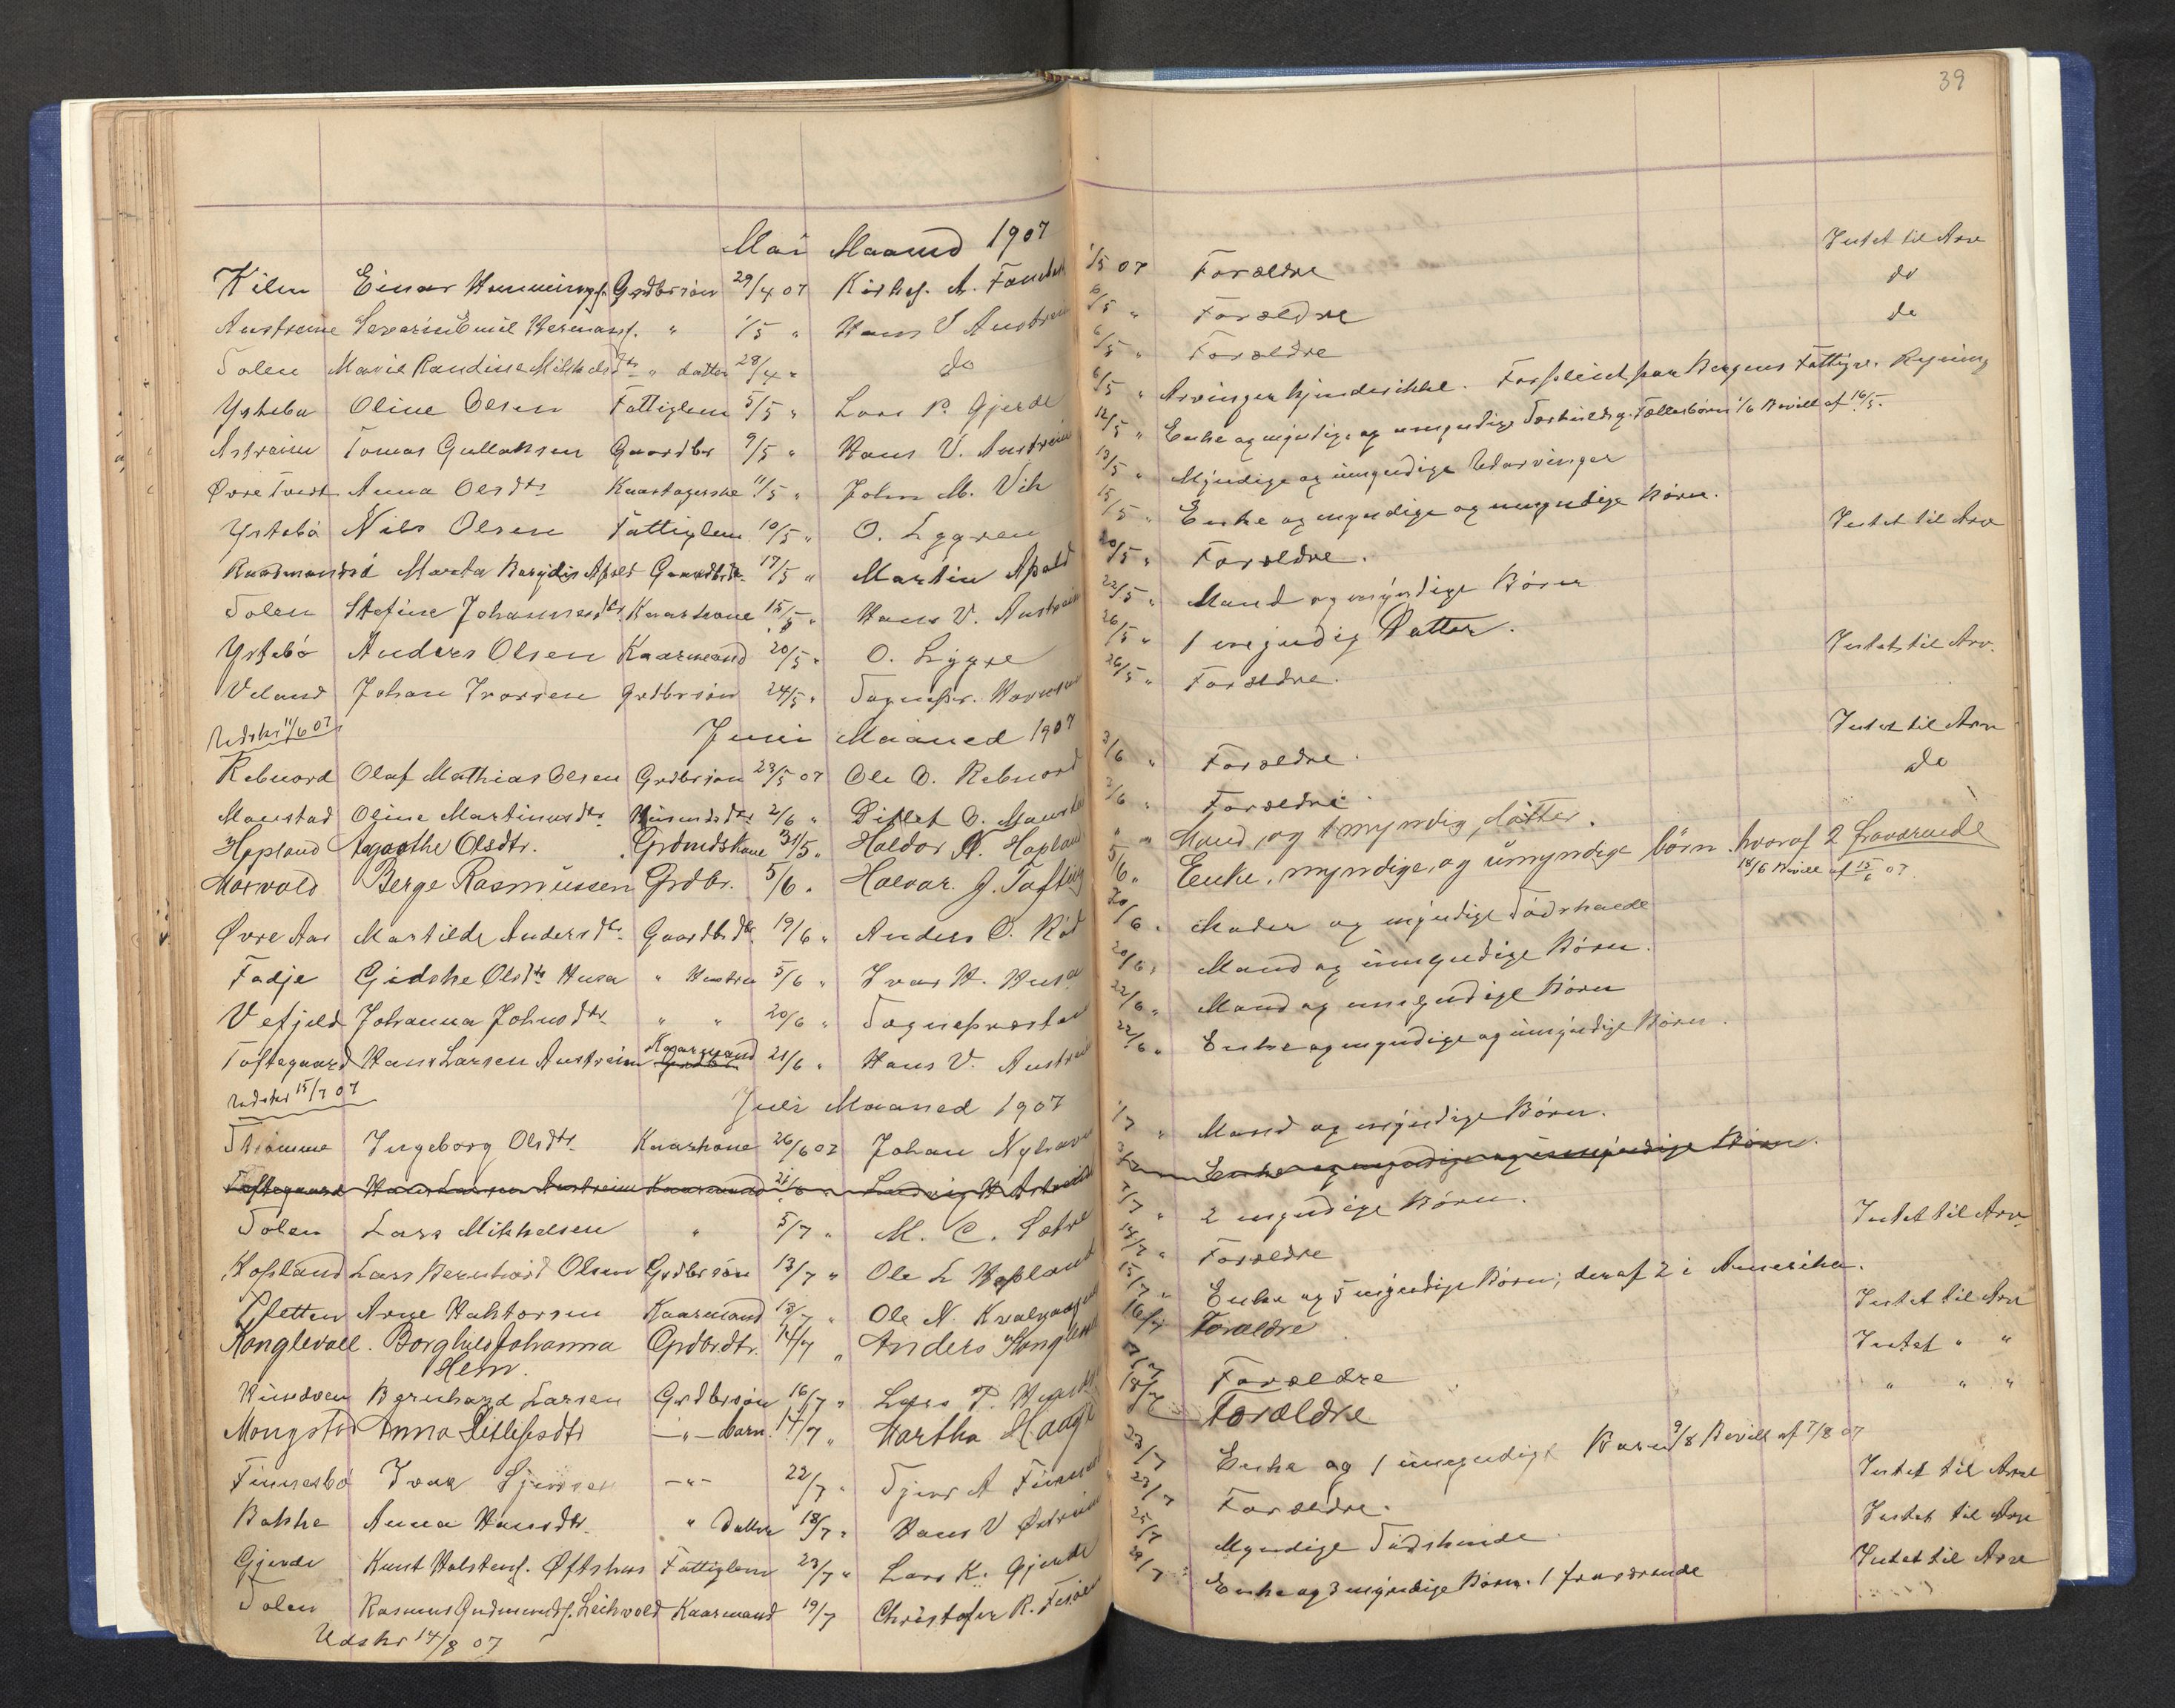 39
Mai Maaned 1907
Kilen Einar Hennings. Grdbrsøn 29/4 07 Kirkes. A. 1/5 07 Forældre Intet til Arv
Austreim Severin Emil Hermans. " 1/5 " Hans V Austreim 6/5 " Forældre do
Solen Marie Randine Mikkelsdtr " datter 28/4 " do 6/5 " Forældre do
Ystebø Oline Olsen Fattiglem 5/5 " Lars P. Gjerde 6/5 " Arvinger kjendes ikke. Bergens Fattigv. Regning
Astreim Tomas Gullaksen Gaardbr 9/5 " Hans V. Austreim 12/5 " Enke og myndige og umyndige Fællesbørn 1/6 Bevill af 16/5.
Øvre Tvedt Anna Olsdtr 11/5 " John M. Vik 13/5 " Myndige og umyndige Udarvinger
Ystebø Nils Olsen Fattiglem 10/5 " O. Lygren 15/5 " Enke og myndige og umyndige Børn.
Marta Bergitte Apold Gaardbrdtr. 17/5 " Martin Apold 20/5 " Forældre. Intet til Arv
Solen Stefine Johannesdtr. Kaarkone 15/5 " Hans V. Austreim 22/5 " Mand og myndige Børn
Ystebø Anders Olsen Kaarmand 20/5 " O. Lygre 26/5 " 1 myndig Datter.
Veland Johan Ivarsen Grdbrsøn 24/5 " Sognepr. 26/5 " Forældre. Intet til Arv.
Udskr 11/6 07
Juni Maaned 1907
Rebnord Olaf Mathias Olsen Grdbrsøn 23/5 07 Ole O. Rebnord 3/6 " Forældre. Intet til Arv
Monstad Oline Martinusdtr Husmdsdtr 2/6 " Ditlef O. Monstad 3/6 " Forældre. do
Hopland Agathe Olsdtr. Grdmdskone 31/5 " Haldor N. Hopland " " Mand, og 1 myndig datter.
Morvold Berge Rasmussen Grdbr. 5/6 " Halvar. J. Tafting 5/6 " Enke, myndige, og umyndige børn hvoraf 2 fraværende
18/6 Bevill af 15/6 07
Øvre Aas Martilde Andersdtr. Gaardbrdtr. 19/6 " Anders O. 20/6 " Moder og myndige Sødskende
Fadje Gidske Olsdtr Husa " Hustru 5/6 " Ivar H. Husa 20/6 " Mand og umyndige Børn.
Vefjeld Johanna Johnsdtr " " 20/6 " Sognepresten 22/6 " Mand og umyndige Børn
Toftegaard Hans Larsen Austreim Kaarmand Grdbr 21/6 " Hans V. Austreim 22/6 " Enke og myndige og umyndige Børn.
Udskr 15/7 07
Juli Maaned 1907
Strømme Ingeborg Olsdtr. Kaarkone 26/6 07 Johan 1/7 " Mand og myndige Børn.
Toftegaard Hans Larsen Austreim Kaarmand 21/6 Ludvig H Astreim Enke og myndige og umyndige Børn.
Solen Lars Mikkelsen " 5/7 " M. C. Sætre 7/7 " 2 myndige Børn.
Hopland Lars Bernhard Olsen Grdbrsøn 13/7 " Ole L Hopland 14/7 " Forældre Intet til Arv.
Sletten Arne Haktorsen Kaarmand 13/7 " Ole N. 15/7 " Enke og 5 myndige Børn; deraf 2 i Amerika.
Konglevoll. Borghild Johanna Grdbrdtr. 14/7 " Anders Konglevoll 16/7 Forældre Intet til Arv
Hem.
Hundven Bernhard Larsen Grdbrsøn 16/7 " Lars P. Hundven 17/7 Forældre Intet " "
Mongstad Anna Ditlefsdtr — " — barn. 14/7 " Martha Haage 18/7 Forældre " " "
Finnesbø Ivar — " — 22/7 " 23/7 Enke og 1 umyndigt Barn 9/8 Bevill af 7/8 07
Bakke Anna Hansdtr. " Datter 18/7 " Hans V Østreim 23/7 Forældre. Intet til Arv
Gjerde Knut Halstens. Øftshus Fattiglem 23/7 " Lars K. Gjerde 25/7 Myndige Sødskende Intet til Arv
Solen Rasmus Gudmunds. Leikvold Kaarmand 19/7 Christofer R. 29/7 Enke og 3 myndige Børn. 1 fraværende Intet til Arv
Udskr 14/8 07